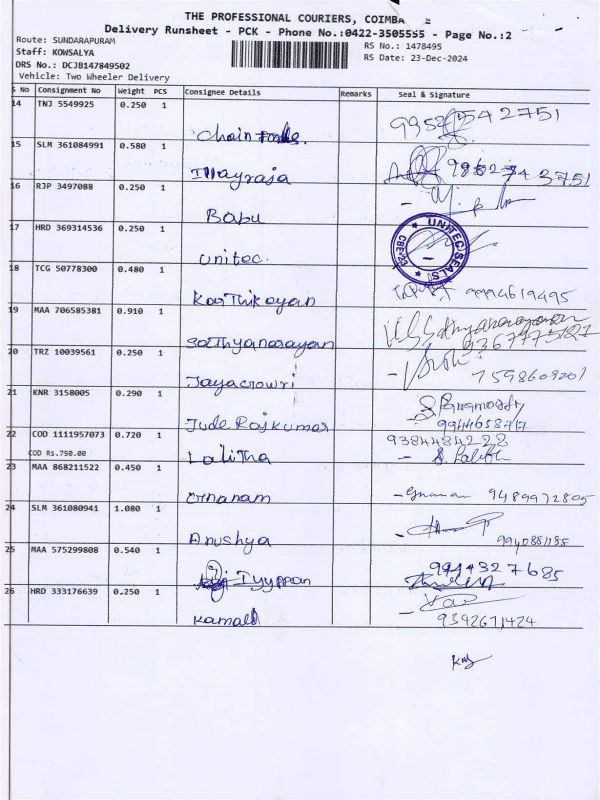 THE PROFESSIONAL COURIERS, COIMBA
Delivery Runsheet - PCK - Phone No.:0422-3505555 - Page No.:2
Route: SUNDARAPURAM
RS No.: 1478495
Staff: KOWSALYA
RS Date: 23-Dec-2024
DRS No.: DCJB147849502
Vehicle: Two Wheeler Delivery
S No Consignment No Weight PCS Consignee Details Remarks Seal & Signature
14 TNJ 5549925 0.250 1
Chain
15 SLM 361084991 0.580 1
Illayraja
16 RJP 3497088 0.250 1
Babu
17 HRD 369314536 0.250 1
unitec.
UNITEC SEALS
CBE-23
18 TCG 50778300 0.480 1
Karthikeyan 9994619495
19 MAA 706585381 0.910 1
Sathyanarayan
20 TRZ 10039561 0.250 1
Jayacrowri 7598609201
21 KNR 3158005 0.290 1
Jude Rajkumar
22 COD 1111957073 0.720 1 9384484228
COD Rs.750.00
Lalitha
23 MAA 868211522 0.450 1
Gnanam 9489972805
24 SLM 361080941 1.080 1
Anushya
25 MAA 575299808 0.540 1
Iyyppan 9944327685
26 HRD 333176639 0.250 1
Kamal 9342671424